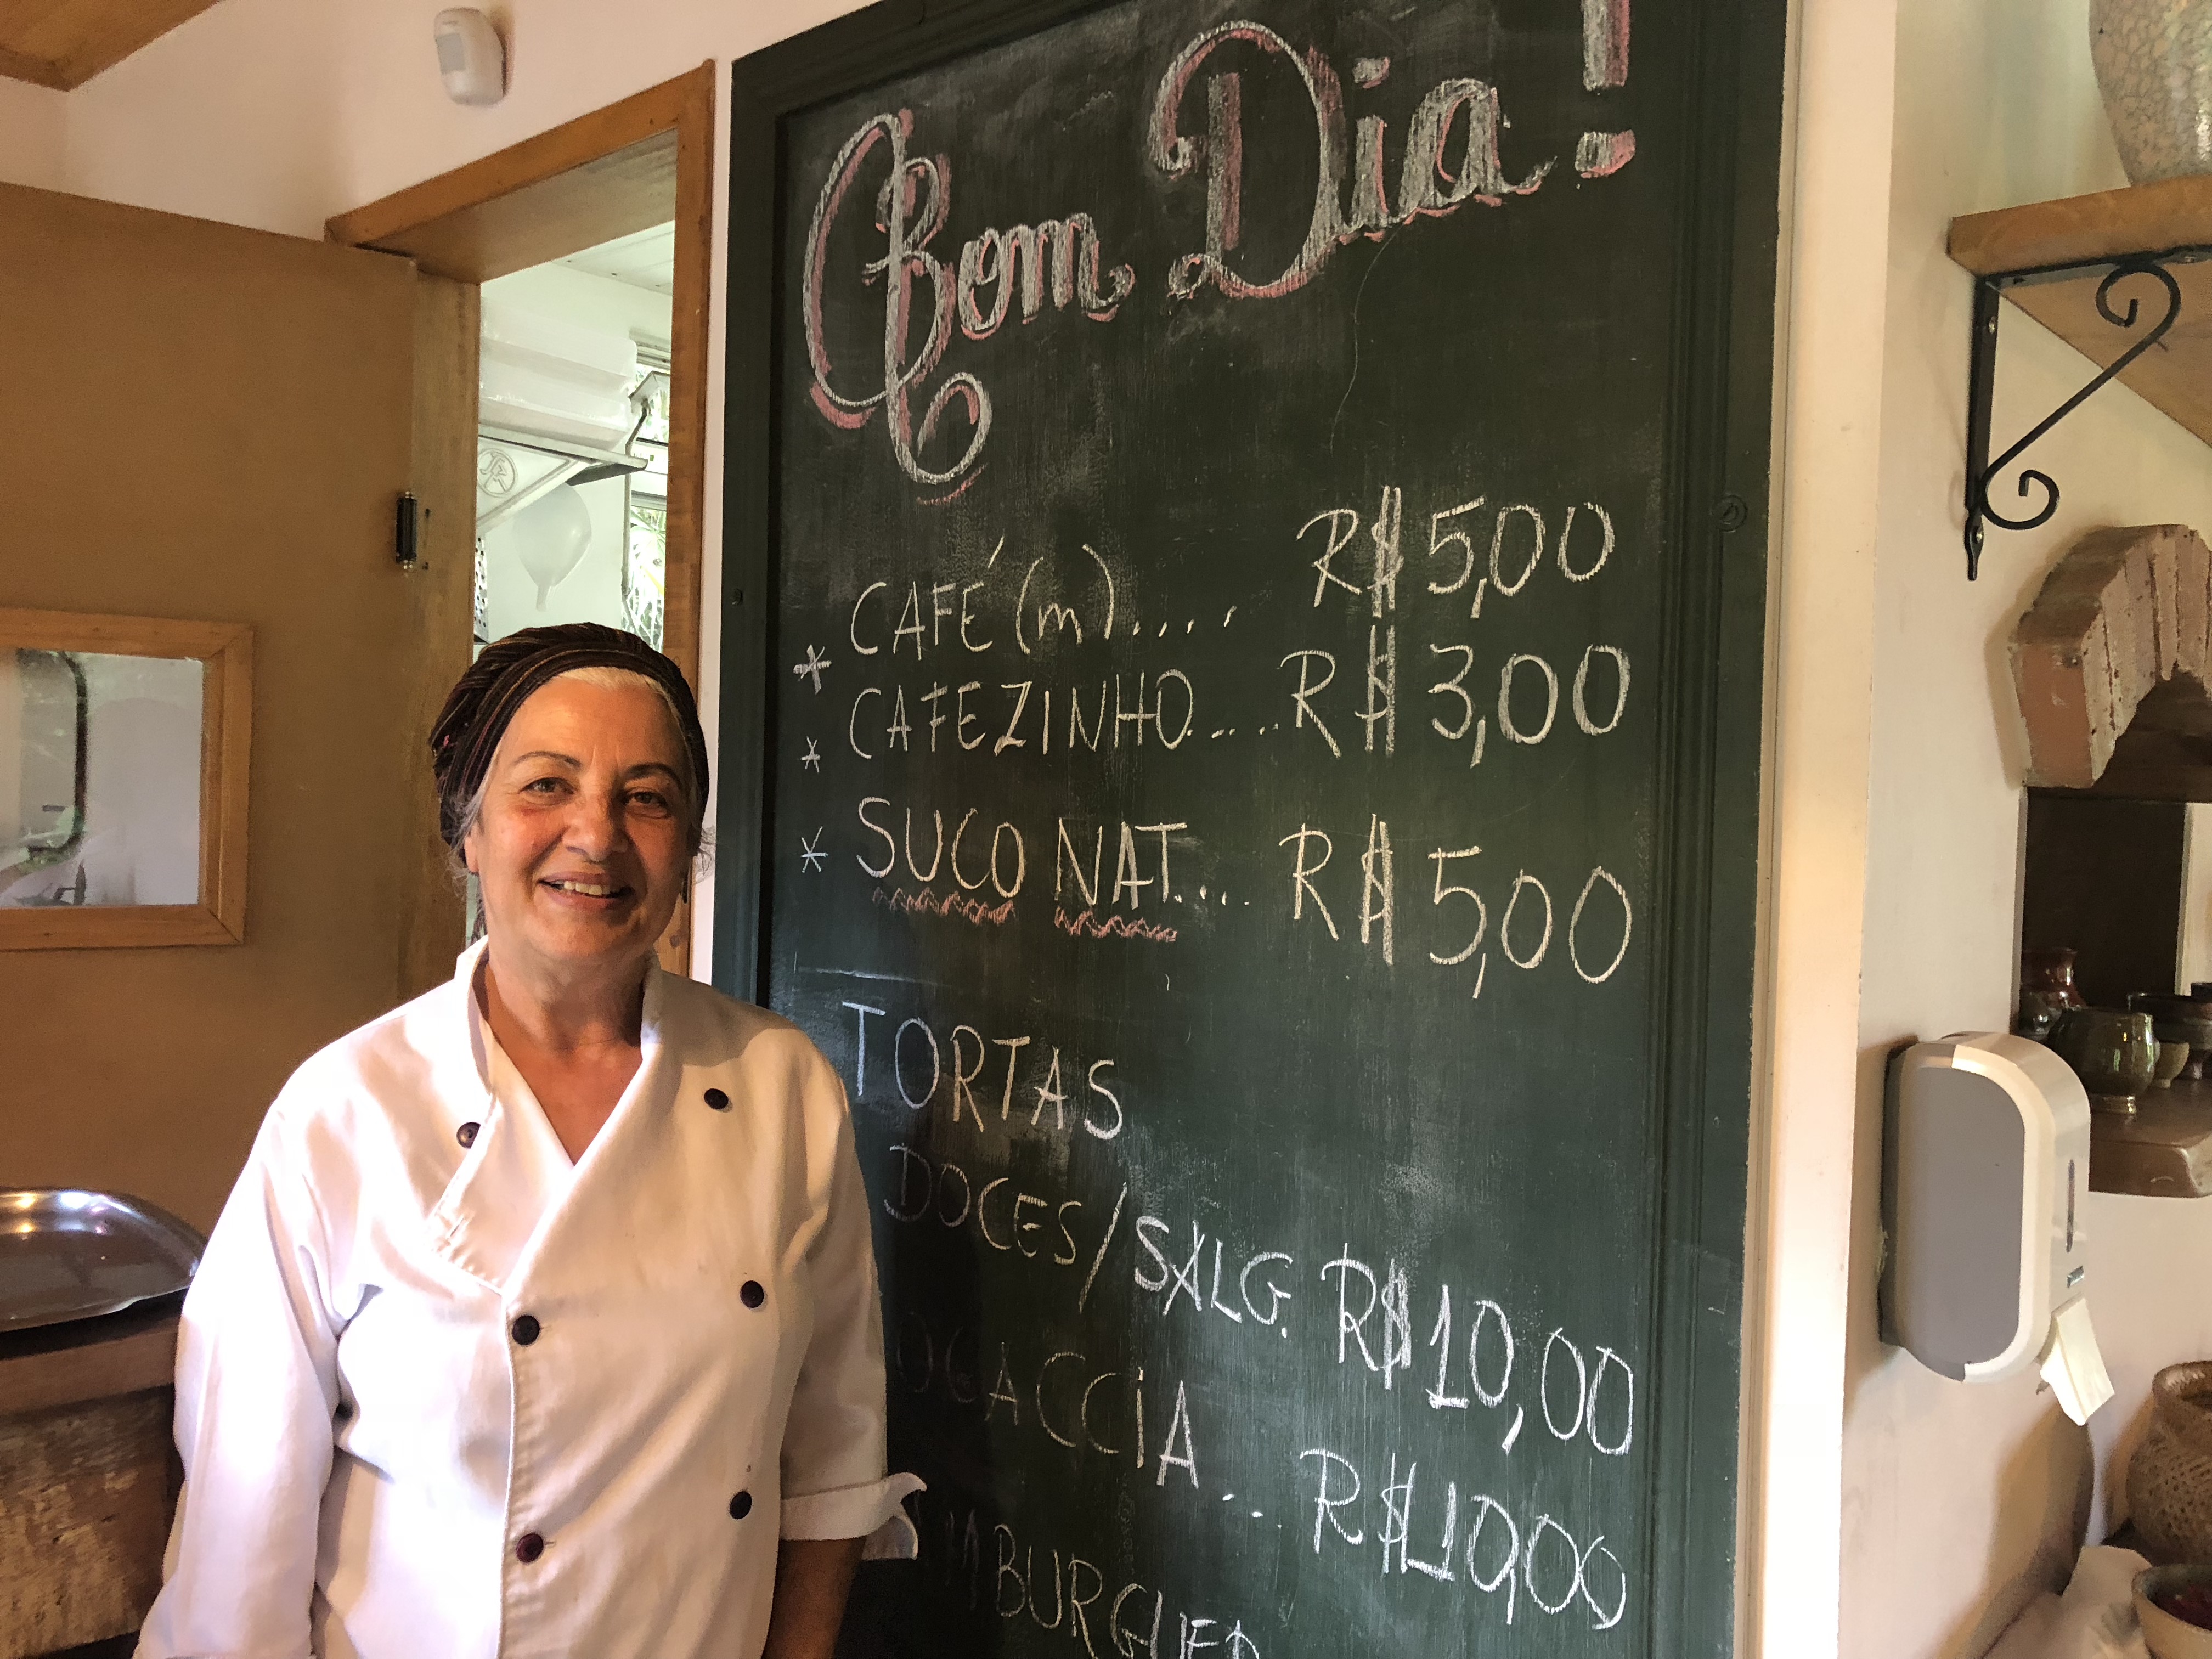 Bom Dia!
* CAFÉ (m).... R$ 5,00
* CAFEZINHO..... R$ 3,00
* SUCO NAT.... R$ 5,00
TORTAS
DOCES/SALG. R$ 10,00
OCACCIA... R$ 10,00
MBURGUER